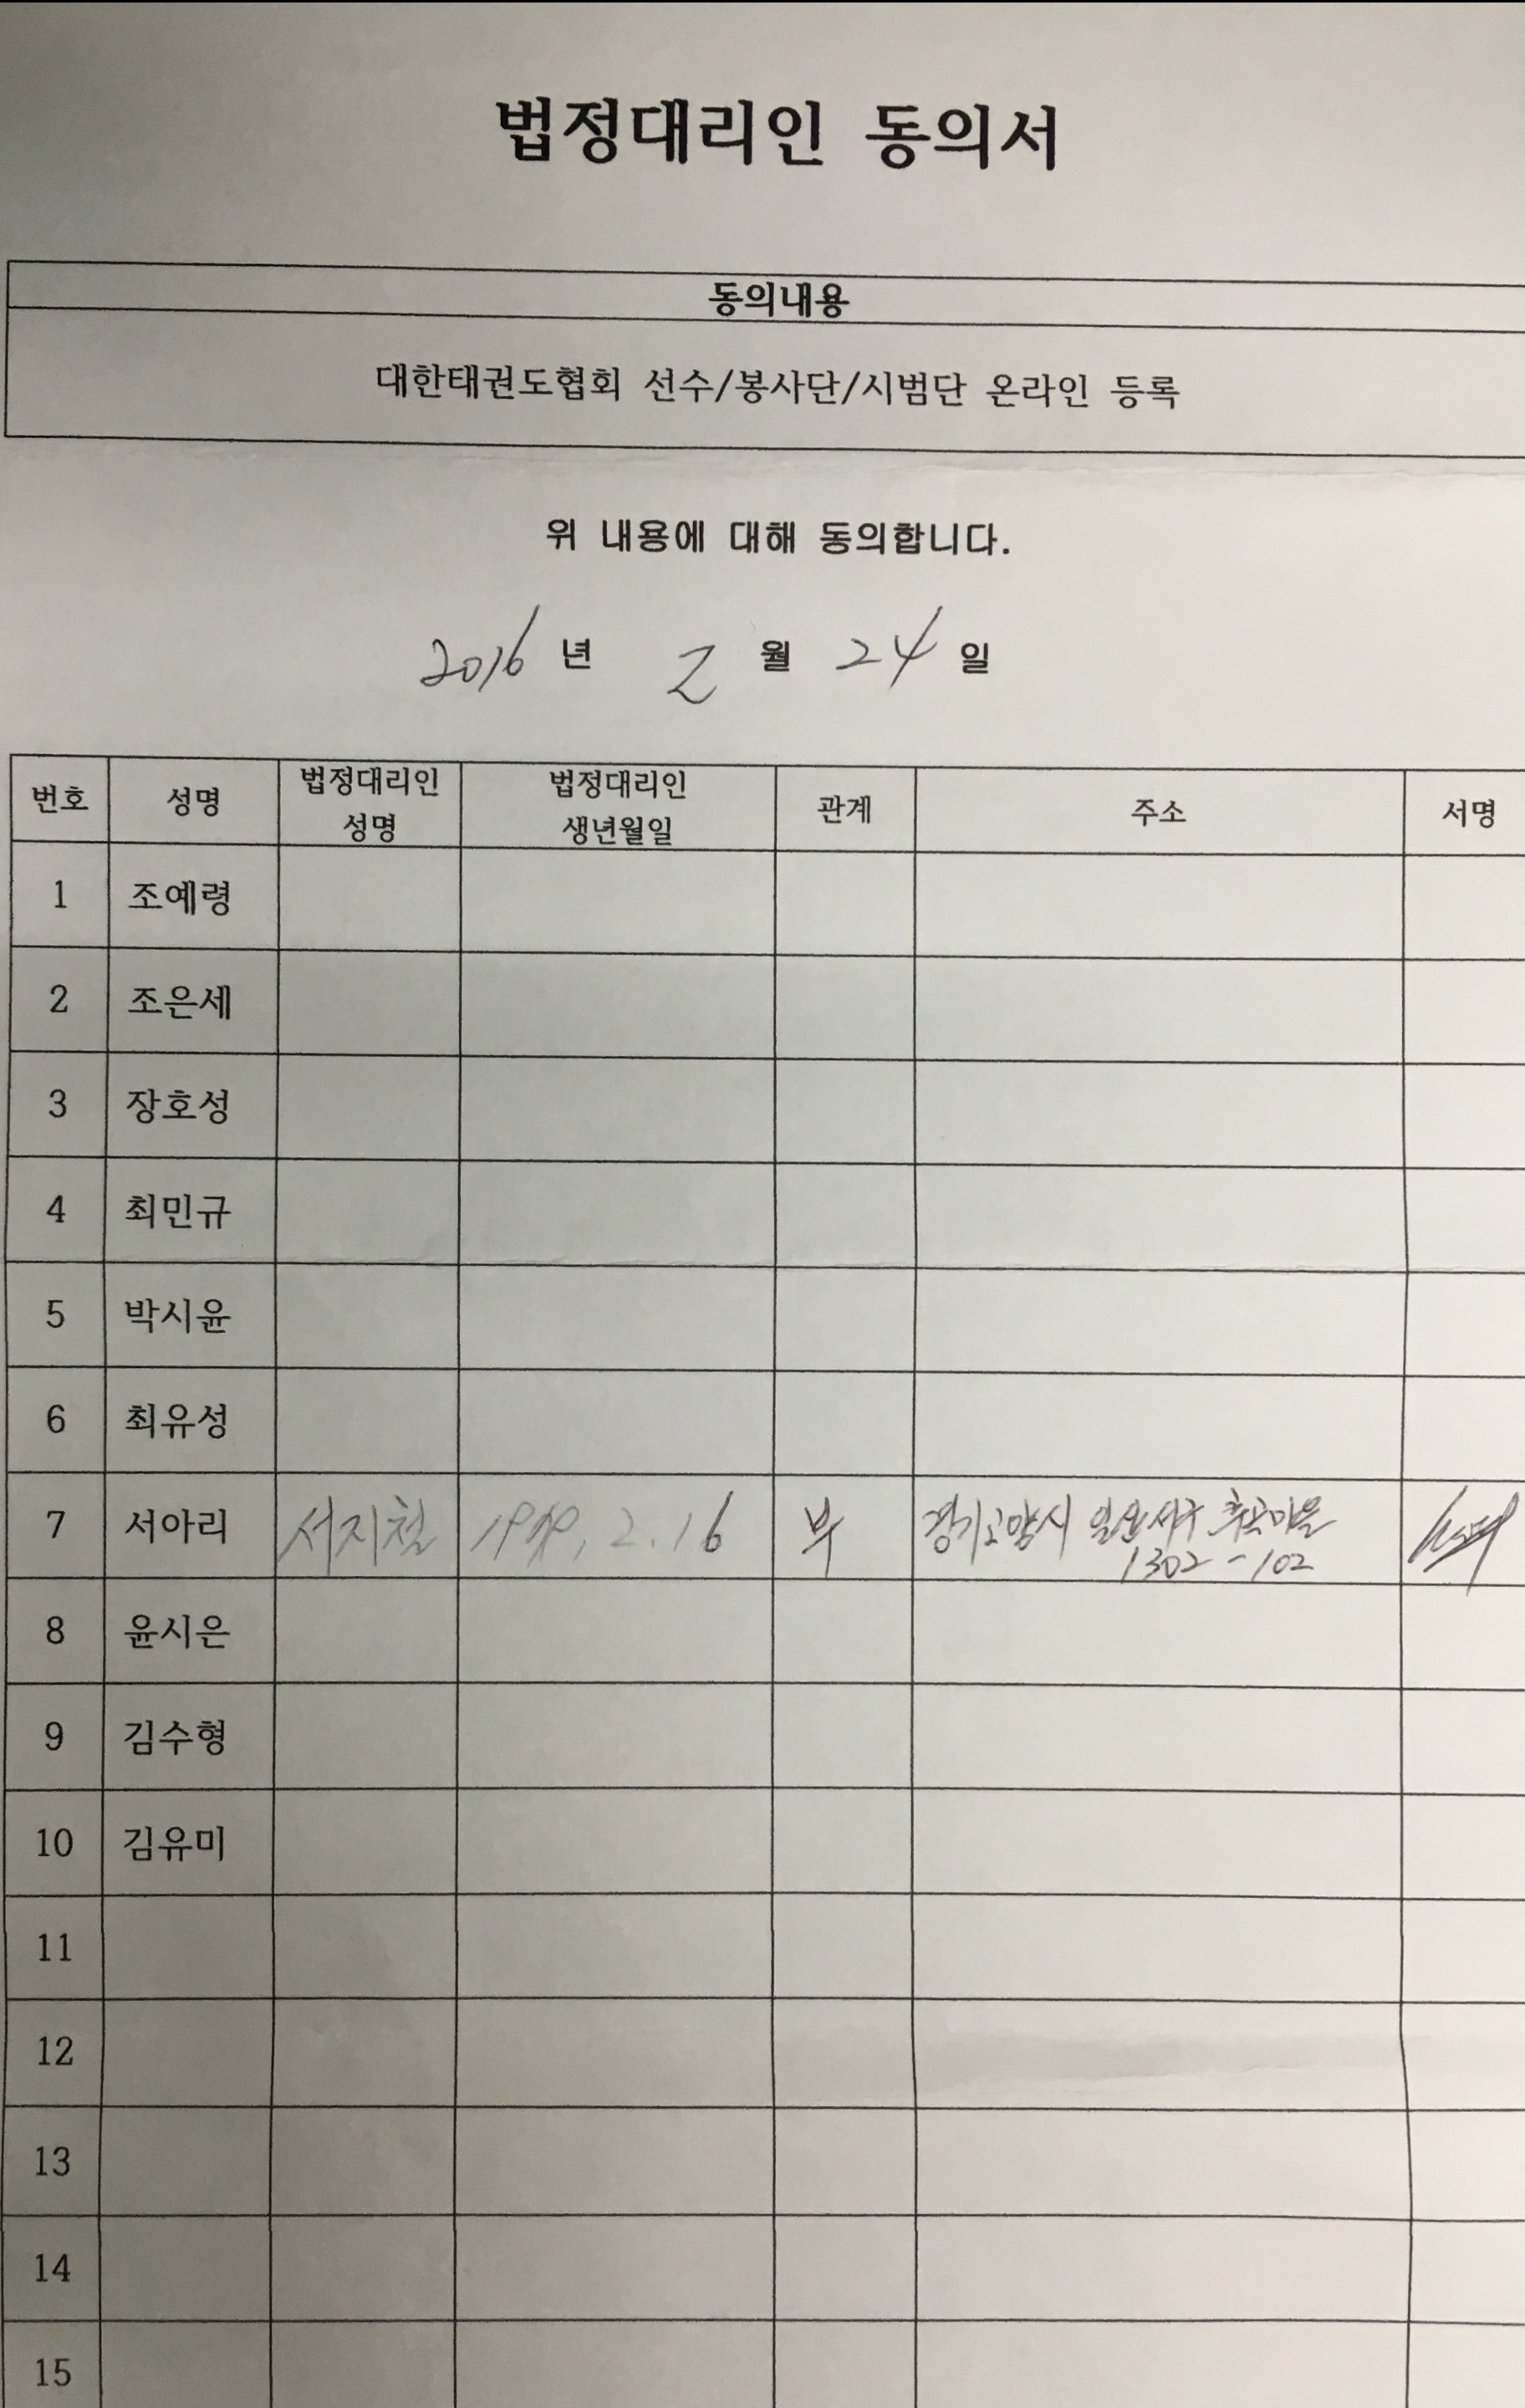 법정대리인 동의서
동의내용
대한태권도협회 선수/봉사단/시범단 온라인 등록
위 내용에 대해 동의합니다.
2016 년 2 월 24 일
번호 성명 법정대리인 성명 법정대리인 생년월일 관계 주소 서명
1 조예령
2 조은세
3 장호성
4 최민규
5 박시윤
6 최유성
7 서아리 서지철 2.16 부 경기고양시 일산서구 후곡마을
1302-102
8 윤시은
9 김수형
10 김유미
11
12
13
14
15